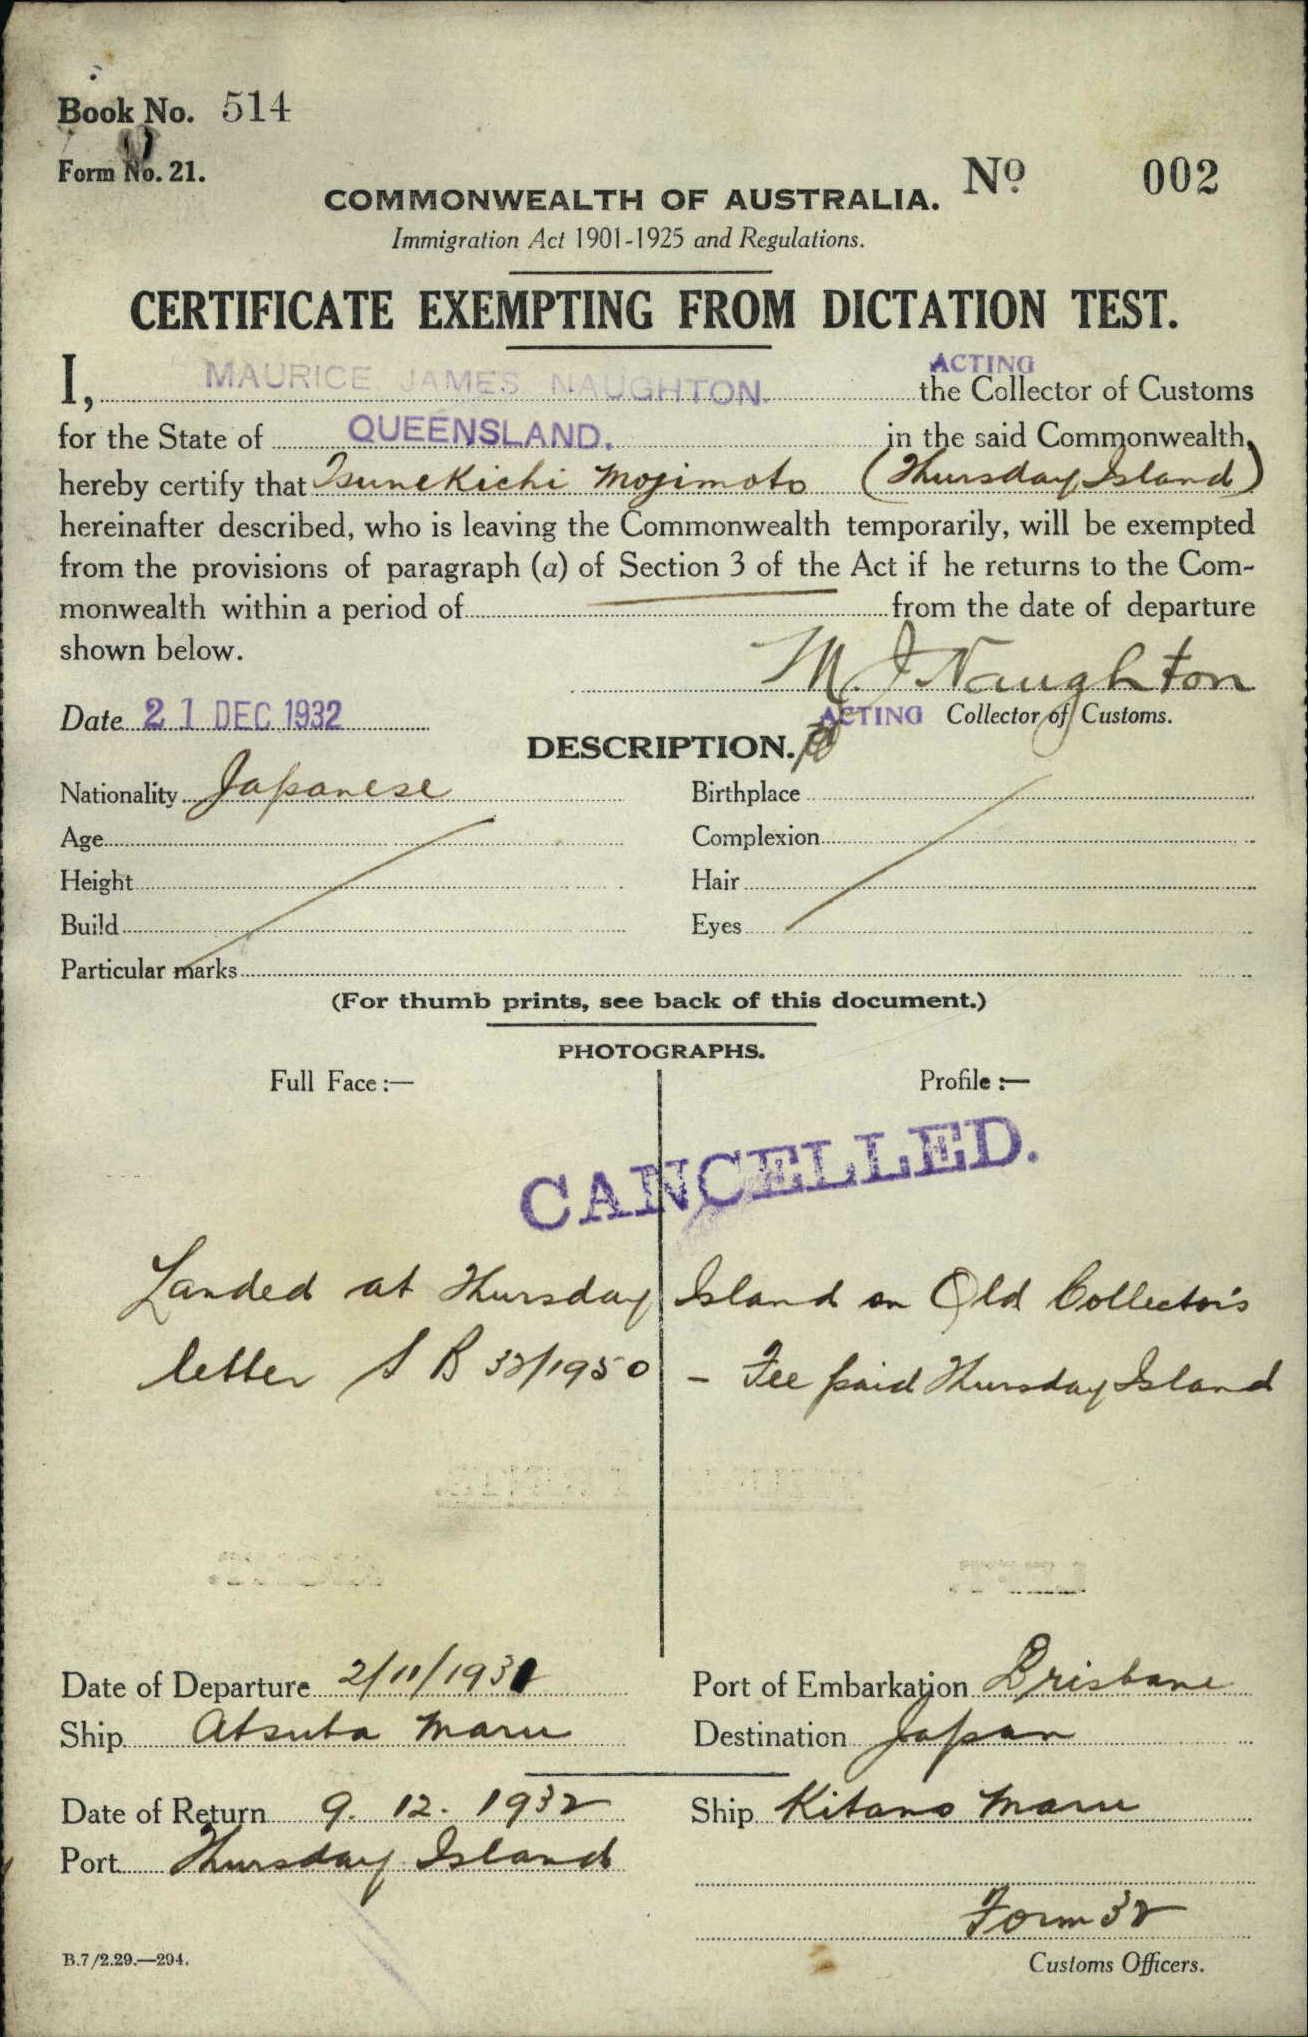 Book No. 514
Form No. 21.
No. 002
COMMONWEALTH OF AUSTRALIA.
Immigration Act 1901-1925 and Regulations.
CERTIFICATE EXEMPTING FROM DICTATION TEST.
ACTING
I, MAURICE JAMES NAUGHTON. the Collector of Customs
for the State of QUEENSLAND. in the said Commonwealth,
hereby certify that Tsunekichi Mojimoto (Thursday Island)
hereinafter described, who is leaving the Commonwealth temporarily, will be exempted
from the provisions of paragraph (a) of Section 3 of the Act if he returns to the Com-
monwealth within a period of from the date of departure
shown below.
M. J Naughton
Date 21 DEC 1932
ACTING Collector of Customs.
DESCRIPTION.
Nationality Japanese Birthplace
Age Complexion
Height Hair
Build Eyes
Particular marks
(For thumb prints, see back of this document.)
PHOTOGRAPHS.
Full Face :— Profile :—
CANCELLED.
Landed at Thursday Island on Qld Collector's
letter S B 32/1950 - Fee paid Thursday Island
Date of Departure 2/11/1931 Port of Embarkation Brisbane
Ship Atsuta Maru Destination Japan
Date of Return 9. 12. 1932 Ship Kitano Maru
Port Thursday Island
Form 32
B.7/2.29.—294.
Customs Officers.